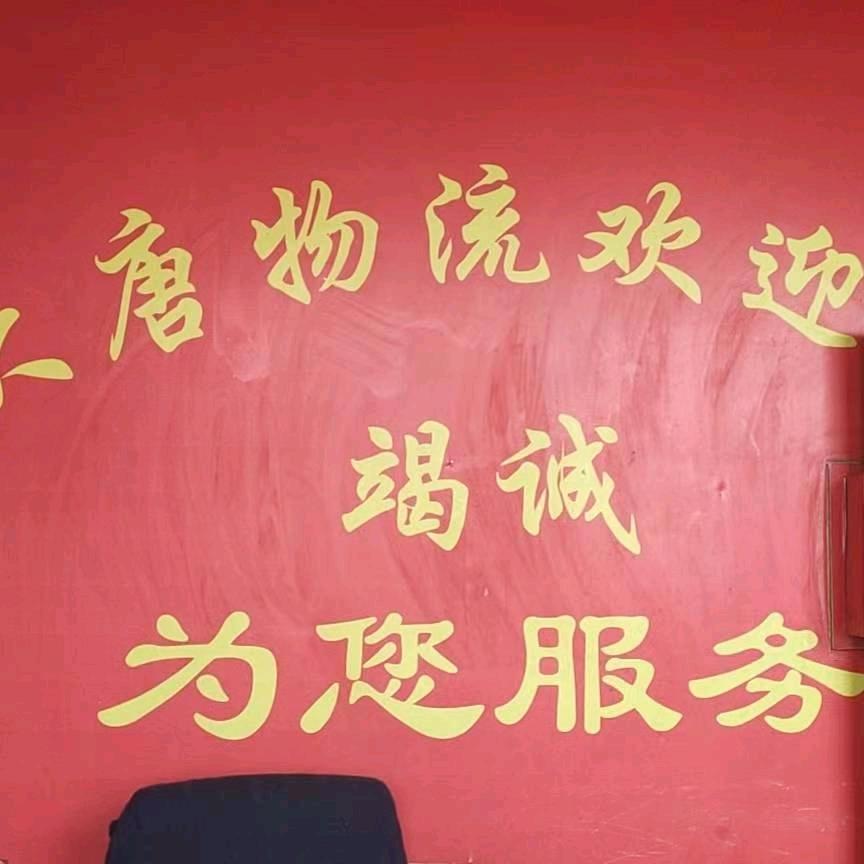 唐物流欢迎
竭诚
为您服务